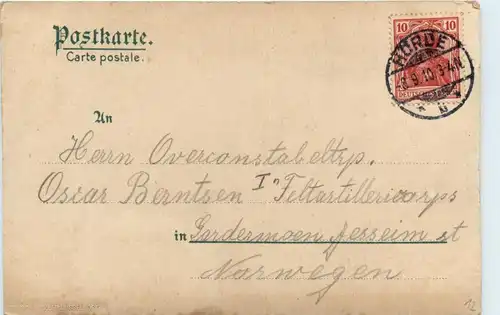 Postkarte.
Carte postale.
10 10
HÖRDE
-8.9.10.3-4N.
An
Herrn Overconstabeltrp.
Oscar Berntsen I Feltartillericorps
in Gardermoen Jesseim st
Norwegen
12